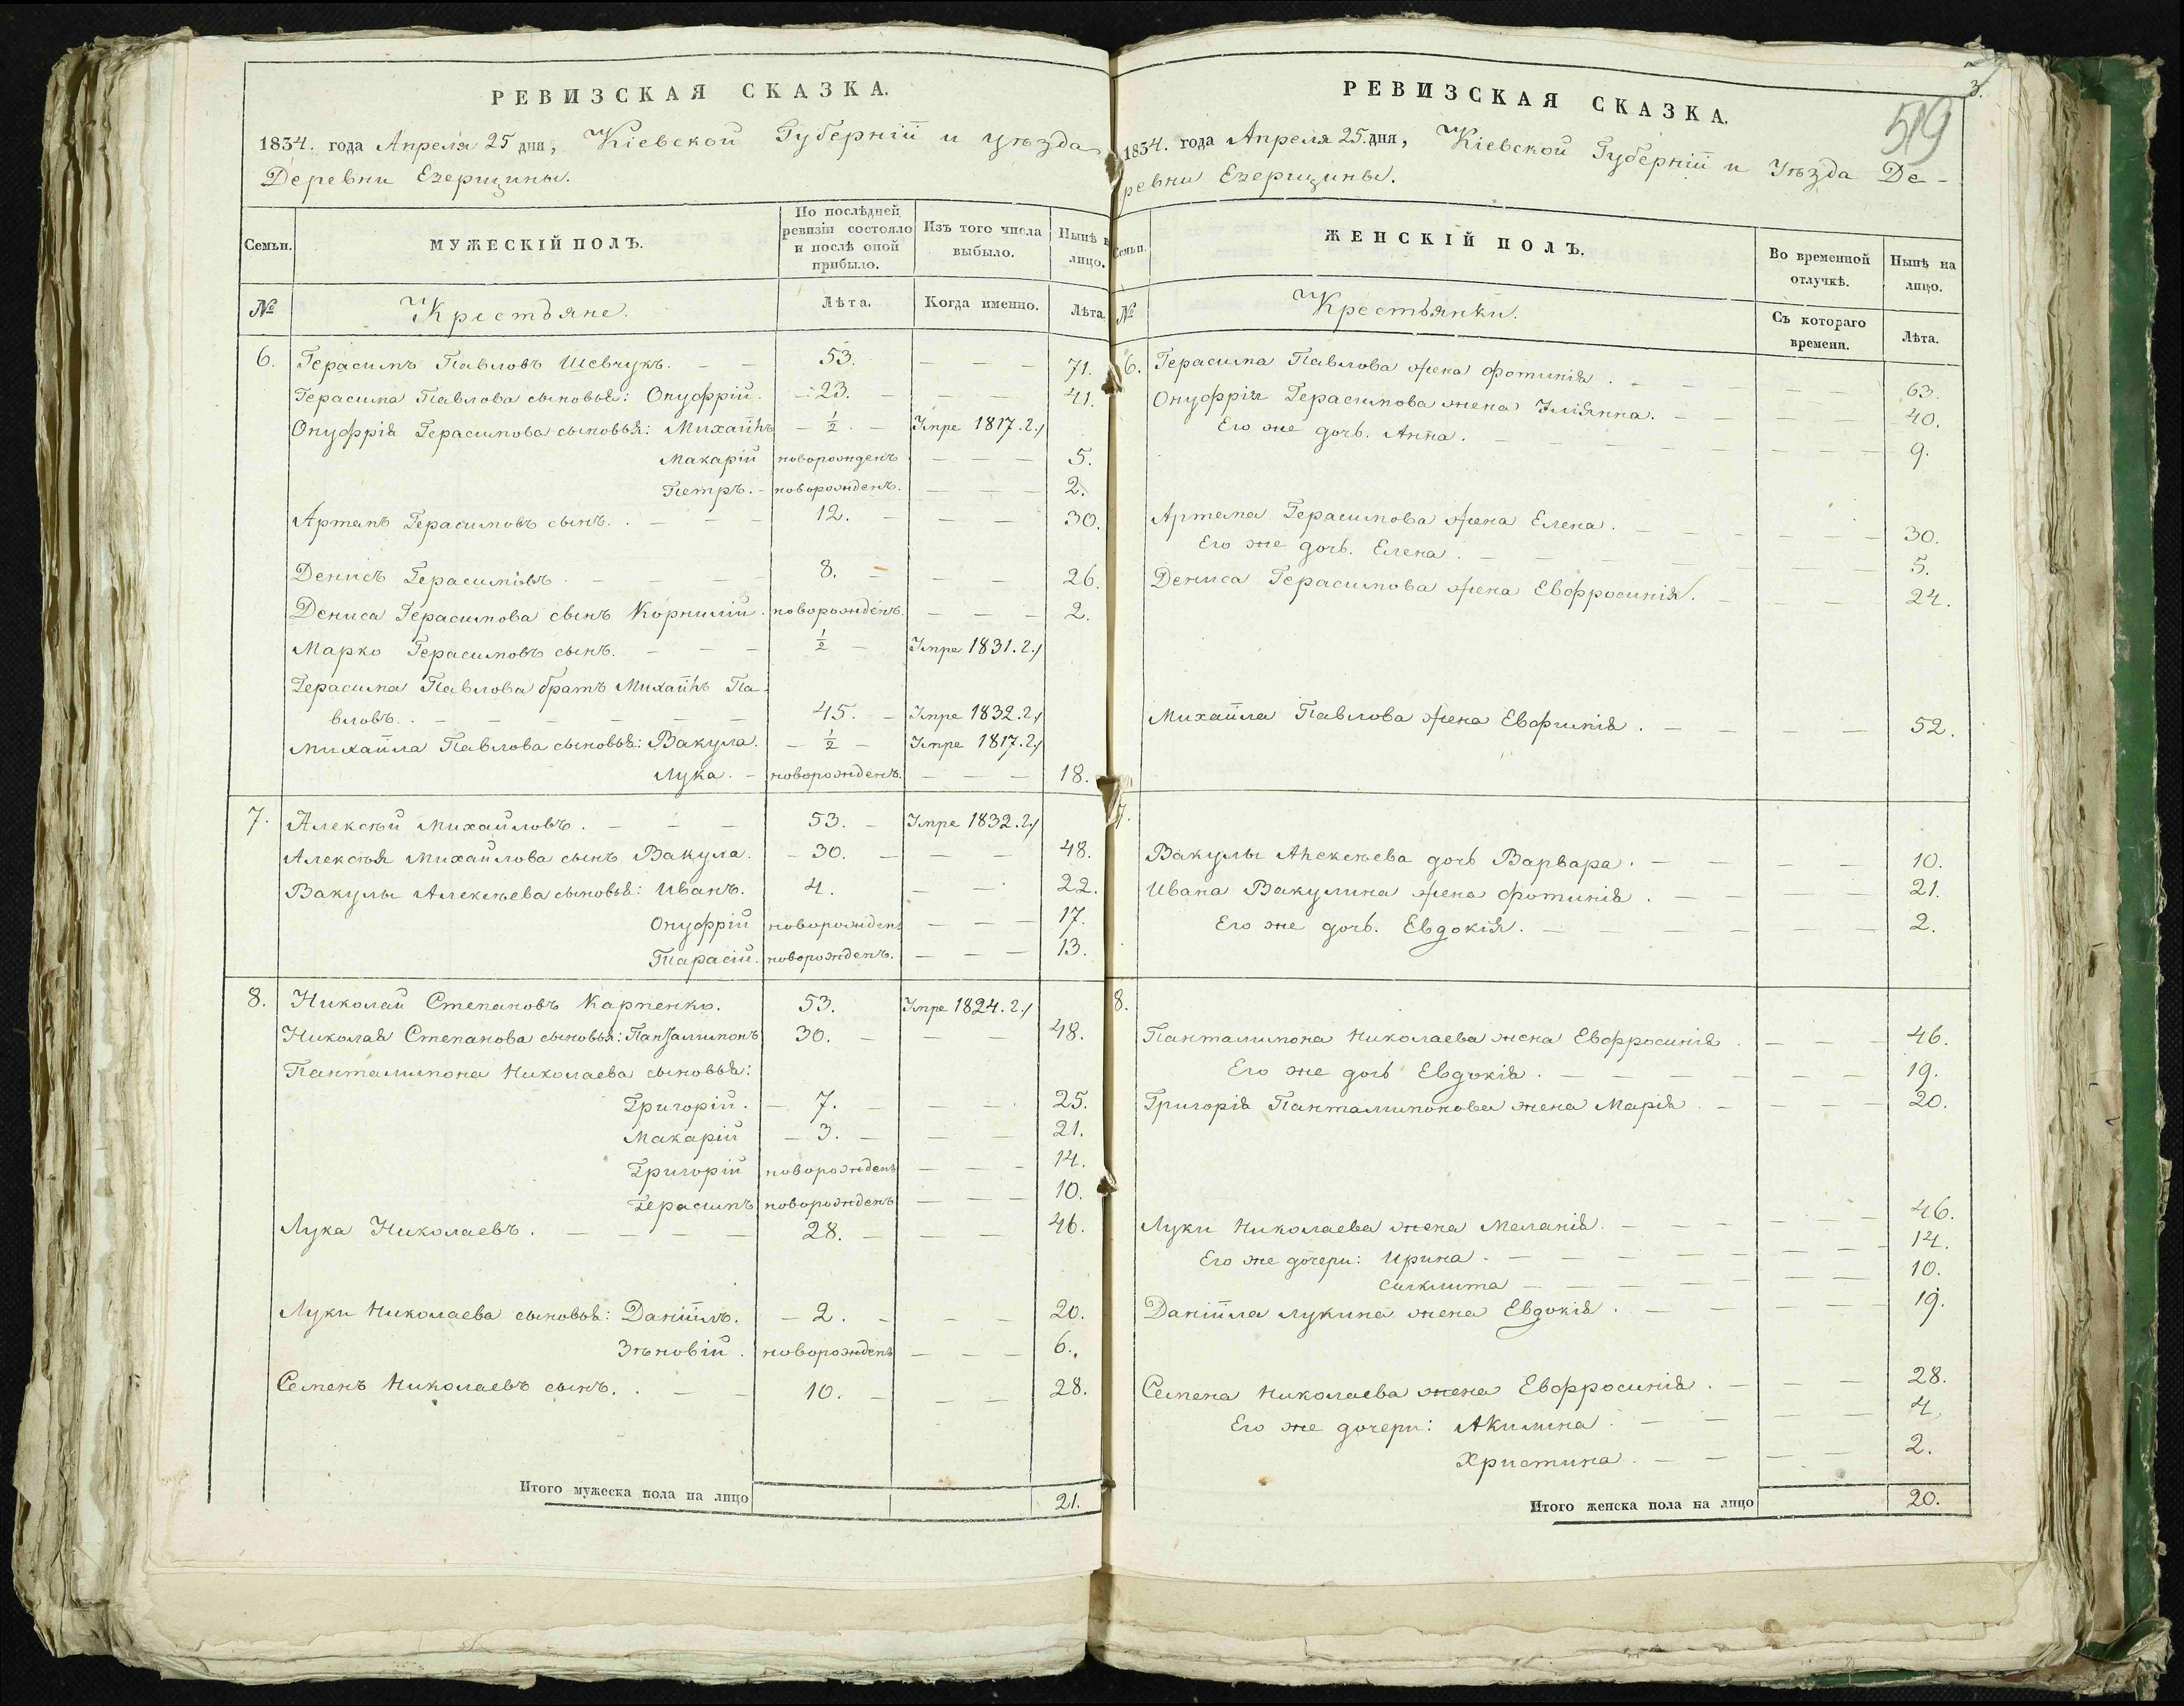 РЕВИЗСКАЯ СКАЗКА.
1834. года Апреля 25 дня, Кіевской Губерніи и уѣзда
Деревни Езерищины.
Семьи. МУЖЕСКІЙ ПОЛЪ. По послѣдней ревизіи состояло и послѣ оной прибыло. Изъ того числа выбыло. Нынѣ на лицо.
№ Крестьяне. Лѣта. Когда именно. Лѣта.
6. Герасимъ Павловъ Шевчукъ. 53. — — — 71.
Герасима Павлова сыновья: Онуфрій. 23. — — — 41.
Онуфрія Герасимова сыновья: Михаилъ ½ Умре 1817. г.
Макарій новорожденъ — — — 5.
Петръ. новорожденъ. — — — 2.
Артемъ Герасимовъ сынъ. 12. — — — 30.
Денисъ Герасимовъ. 8. — — — 26.
Дениса Герасимова сынъ Корнилій. новорожденъ. — — — 2.
Марко Герасимовъ сынъ. ½ Умре 1831. г.
Герасима Павлова братъ Михаилъ Па-
вловъ. 45. Умре 1832. г.
Михаила Павлова сыновья: Вакула. ½ Умре 1817. г.
Лука. новорожденъ. — — — 18.
7. Алексѣй Михайловъ. 53. Умре 1832. г.
Алексѣя Михайлова сынъ Вакула. 30. — — 48.
Вакулы Алексѣева сыновья: Иванъ. 4. — — 22.
Онуфрій новорожденъ — — — 17.
Тарасій. новорожденъ. — — — 13.
8. Николай Степановъ Карпенко. 53. Умре 1824. г.
Николая Степанова сыновья: Панталимонъ 30. — — — 48.
Панталимона Николаева сыновья:
Григорій. 7. — — 25.
Макарій 3. — — 21.
Григорій новорожденъ — — — 14.
Герасимъ новорожденъ — — — 10.
Лука Николаевъ. 28. — — 46.
Луки Николаева сыновья: Даніилъ. 2. — — 20.
Зѣновій. новорожденъ — — — 6.
Семенъ Николаевъ сынъ. 10. — — 28.
Итого мужеска пола на лицо 21.
3.
519
РЕВИЗСКАЯ СКАЗКА.
1834. года Апреля 25. дня, Кіевской Губерніи и Уѣзда Де-
ревни Езерищины.
Семьи. ЖЕНСКІЙ ПОЛЪ. Во временной отлучкѣ. Нынѣ на лицо.
№ Крестьянки. Съ котораго времени. Лѣта.
6. Герасима Павлова жена Фотинія. — — 63.
Онуфрія Герасимова жена Уліянна. — — 40.
Его же дочь. Анна. — — — 9.
Артема Герасимова жена Елена. — — — 30.
Его же дочь. Елена. — — — 5.
Дениса Герасимова жена Евфросинія. — — 24.
Михаила Павлова жена Евфимія. — — — 52.
7.
Вакулы Алексѣева дочь Варвара. — — — 10.
Ивана Вакулина жена Фотинія. — — — 21.
Его же дочь. Евдокія. — — — — 2.
8.
Панталимона Николаева жена Евфросинія. — — — 46.
Его же дочь Евдокія. — — — — 19.
Григорія Панталимонова жена Марія. — — — 20.
Луки Николаева жена Меланія. — — — — 46.
Его же дочери: Ирина. — — — — 14.
Сигклита — — — — 10.
Даніила Лукина жена Евдокія. — — — 19.
Семена Николаева жена Евфросинія. — — — 28.
Его же дочери: Акилина. — — — — 4.
Христина. — — — — 2.
Итого женска пола на лицо 20.